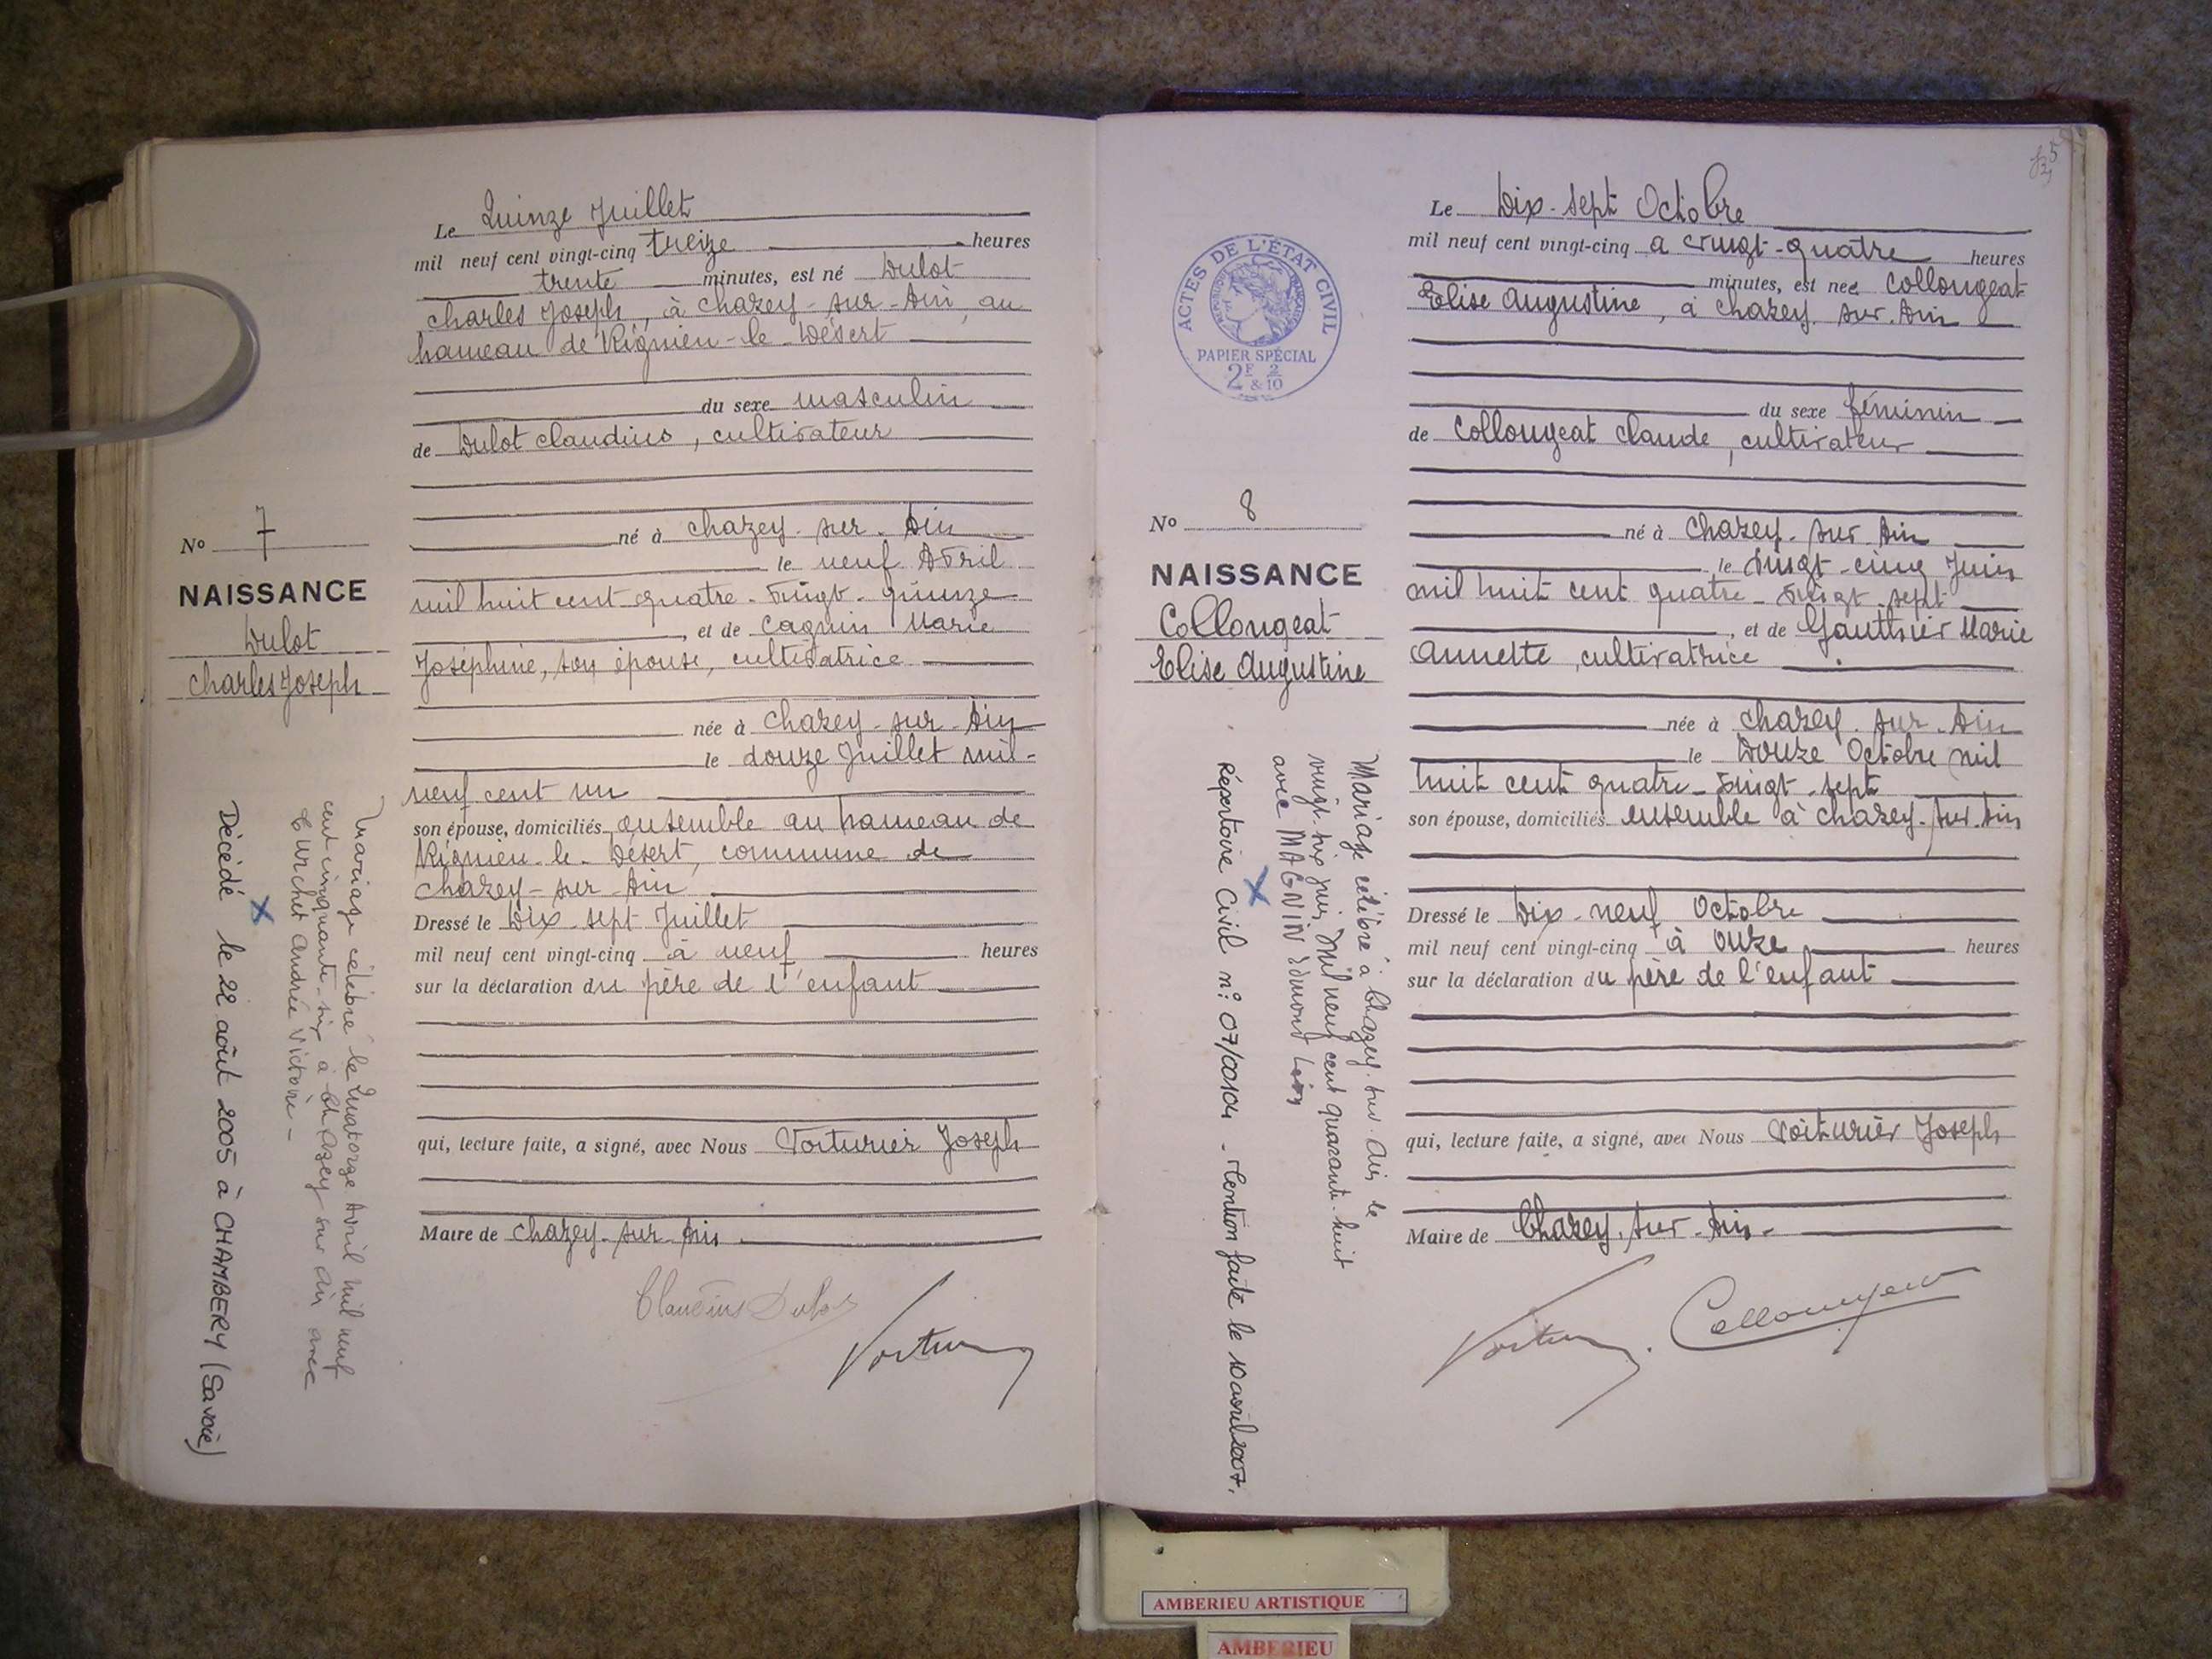 Le Quinze Juillet
mil neuf cent vingt-cinq treize heures
trente minutes, est né Dulot
Charles Joseph, à Chazey-sur-Ain, au
hameau de Rignieu-le-Désert
du sexe masculin
de Dulot Claudius, cultivateur
né à Chazey-sur-Ain
le neuf Avril
mil huit cent quatre-vingt-quinze
, et de Cagnin Marie
Joséphine, son épouse, cultivatrice
née à Chazey-sur-Ain
le douze Juillet mil-
neuf cent un
son épouse, domiciliés ensemble au hameau de
Rignieu-le-Désert, commune de
Chazey-sur-Ain
Dressé le Dix-sept Juillet
mil neuf cent vingt-cinq à neuf heures
sur la déclaration du père de l'enfant
qui, lecture faite, a signé, avec Nous Voiturier Joseph
Maire de Chazey-sur-Ain
Claudius Dulot
Voiturier
No 7
NAISSANCE
Dulot
Charles Joseph
Mariage célébré le Quatorze Avril mil neuf
cent cinquante-six à Chazey sur Ain avec
Curchet Andrée Victoire -
X
Décédé le 22 août 2005 à CHAMBERY (Savoie)
Le Dix-sept Octobre
mil neuf cent vingt-cinq a vingt-quatre heures
minutes, est née Collongeat
Elise Augustine, à Chazey-sur-Ain
du sexe féminin
de Collongeat Claude, cultivateur
né à Chazey-sur-Ain
le vingt-cinq Juin
mil huit cent quatre-vingt-sept
, et de Gauthier Marie
Annette, cultivatrice
née à Chazey-sur-Ain
le Douze Octobre mil
huit cent quatre-vingt-sept
son épouse, domiciliés ensemble à Chazey-sur-Ain
Dressé le Dix-neuf Octobre
mil neuf cent vingt-cinq à onze heures
sur la déclaration du père de l'enfant
qui, lecture faite, a signé, avec Nous Voiturier Joseph
Maire de Chazey-sur-Ain-
Voiturier
Collongeat
ACTES DE L'ÉTAT CIVIL
RÉPUBLIQUE FRANÇAISE
PAPIER SPÉCIAL
2F 2
& 10
No 8
NAISSANCE
Collongeat
Elise Augustine
Mariage célébré à Chazey-sur-Ain le
vingt-six juin mil neuf cent quarante-huit
avec MAGNIN Edmond Léon
X
Répertoire Civil n°: 07/00104 - Mention faite le 10 avril 2007.
AMBERIEU ARTISTIQUE
AMBERIEU